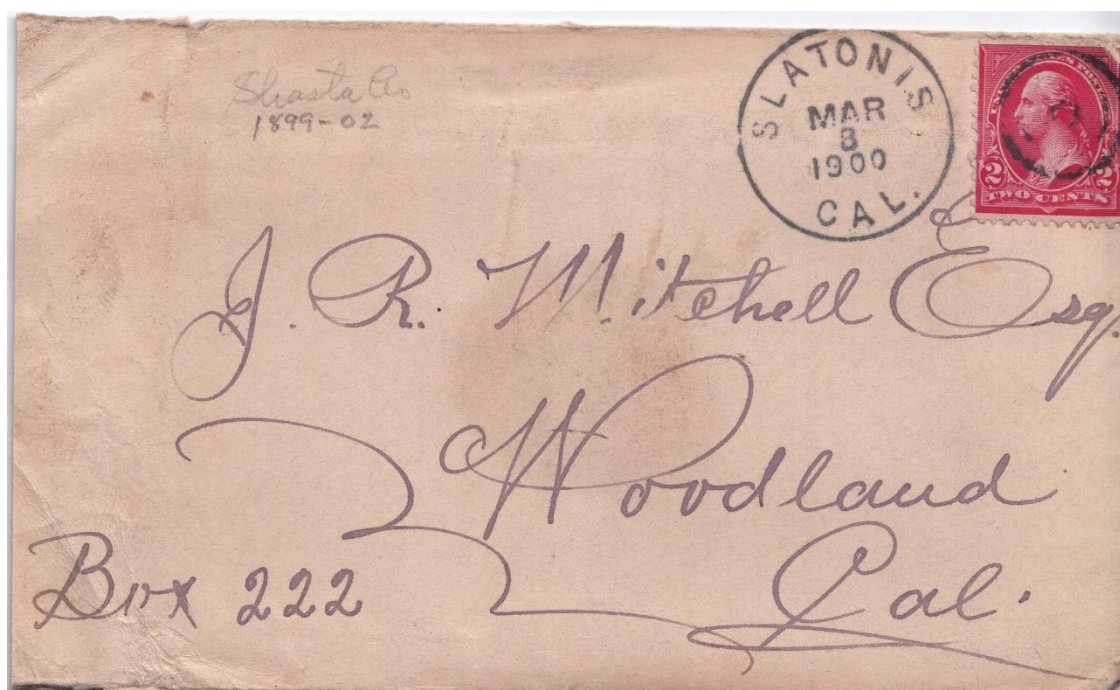 Shasta Co
1899-02
SLATONIS
MAR
8
1900
CAL.
2 2
TWO CENTS
J. R. Mitchell Esq.
Woodland
Cal.
Box 222